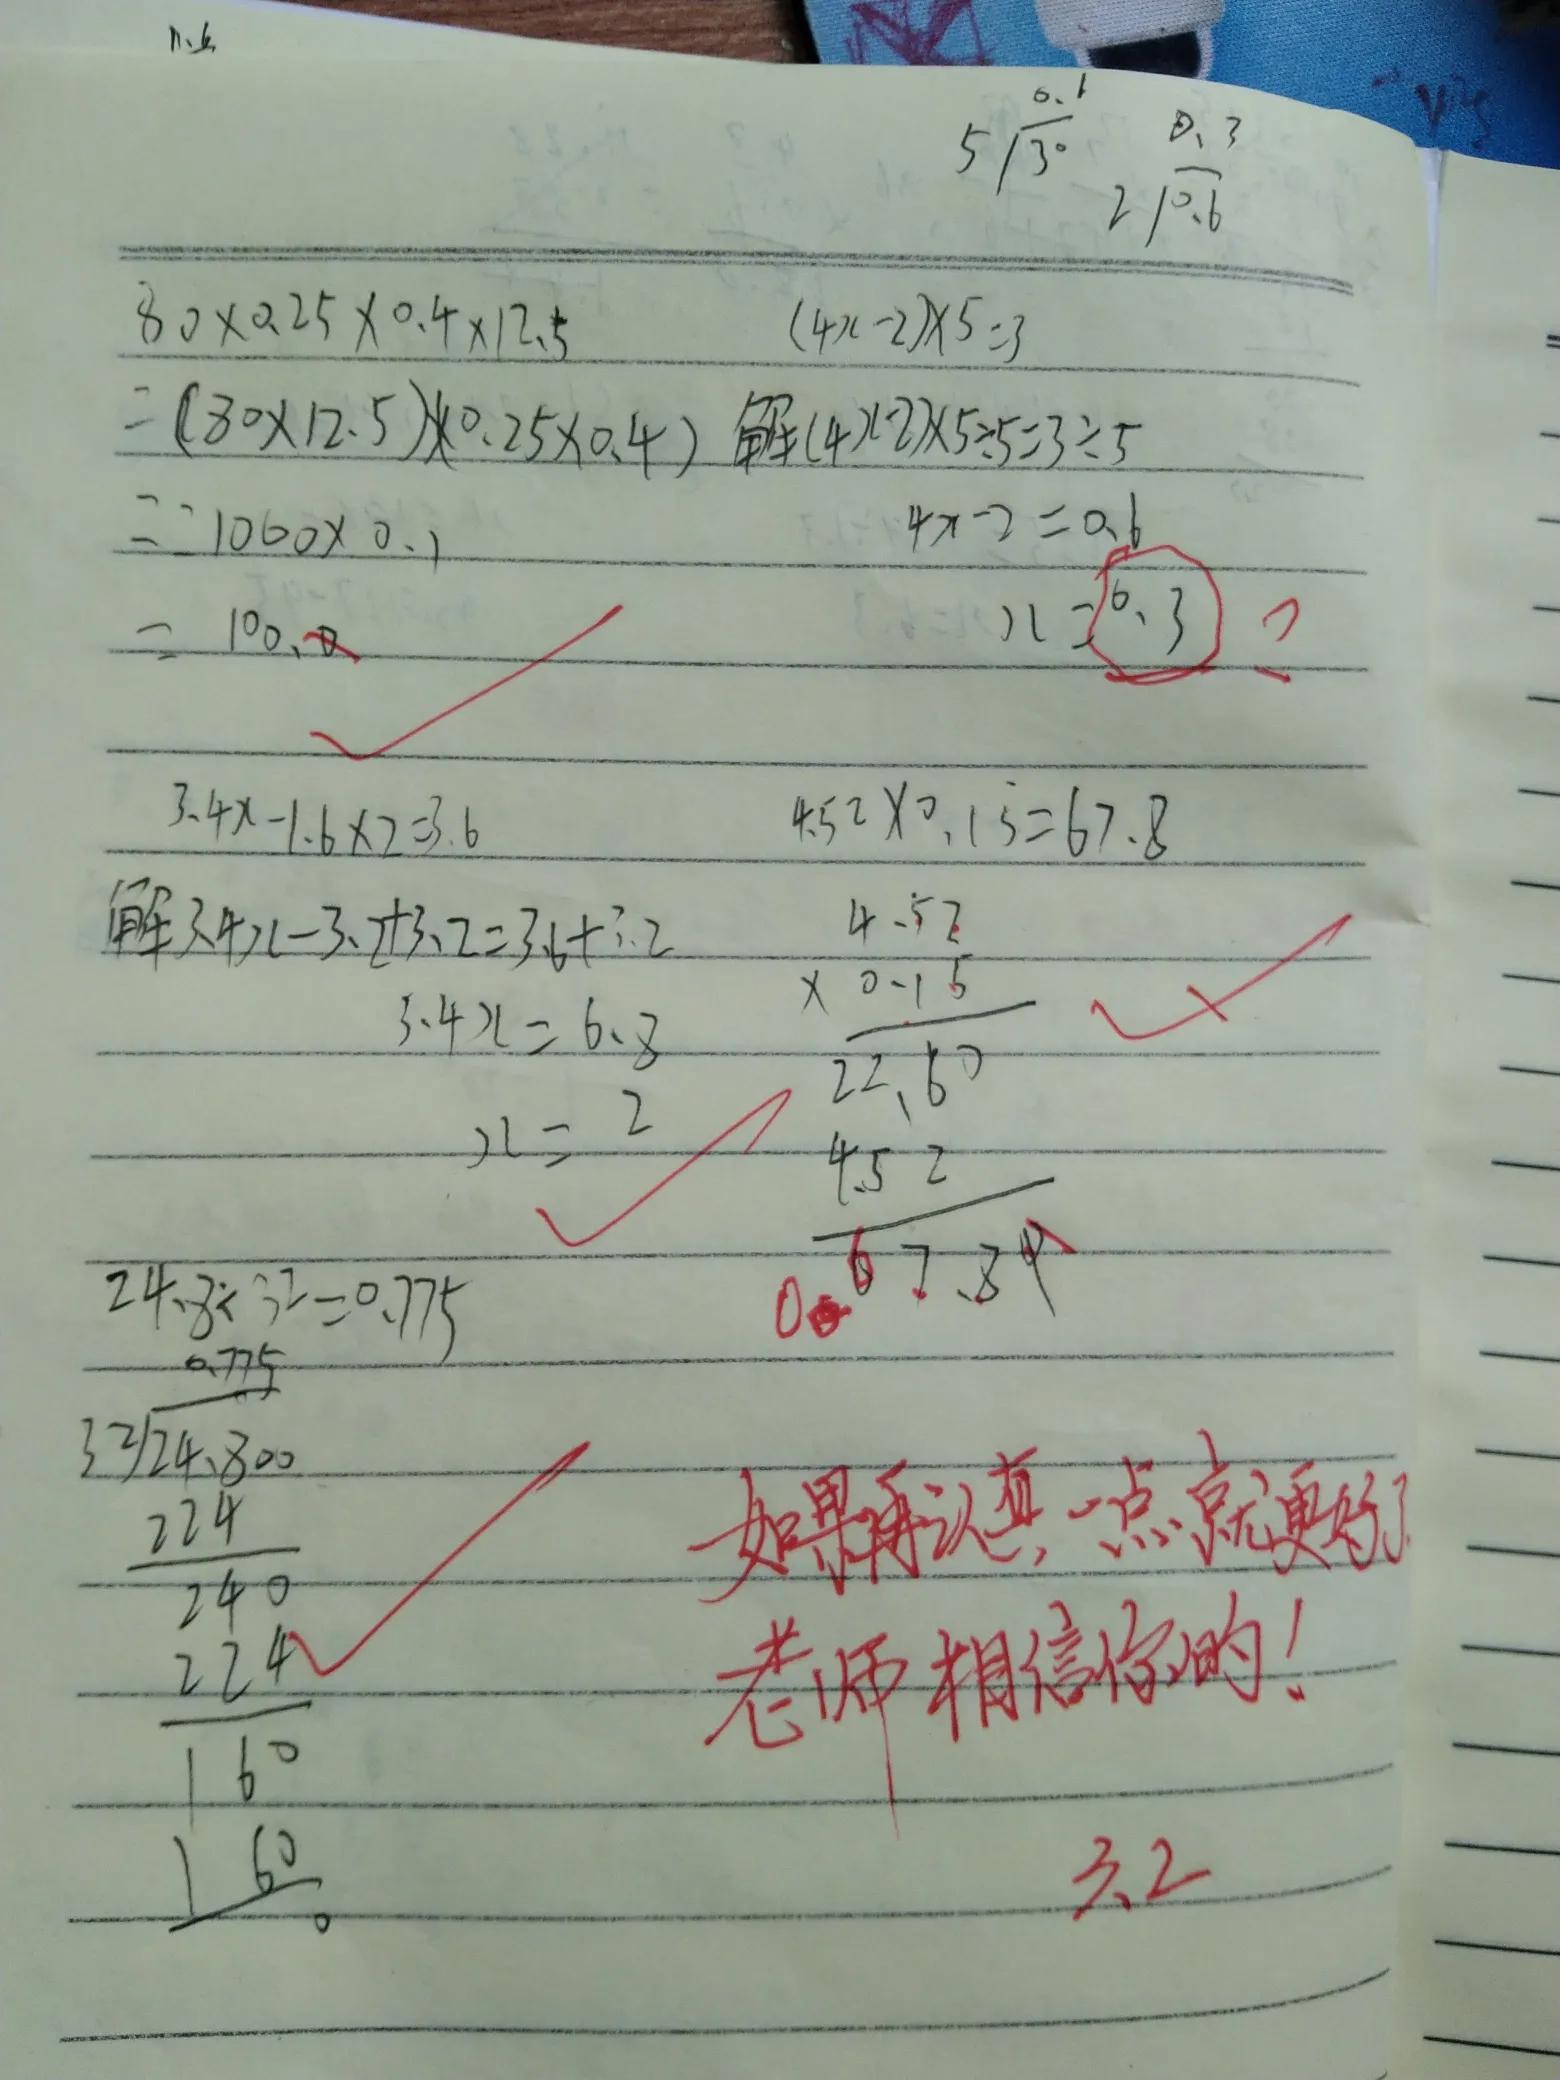 0.6
5/30
0.3
2/0.6
80×0.25×0.4×12.5
=(80×12.5)×(0.25×0.4)
=1000×0.1
=100.0
(4x-2)×5=3
解(4x-2)×5÷5=3÷5
4x-2=0.6
x=0.3
?
3.4x-1.6×2=3.6
解3.4x-3.2+3.2=3.6+3.2
3.4x=6.8
x=2
4.52×0.15=67.8
4.52
×0.15
22.60
4.52
0.67.8
24.8÷32=0.775
0.775
32/24.800
224
240
224
160
160
0
如果再认真一点就更好了
老师相信你的!
3.2